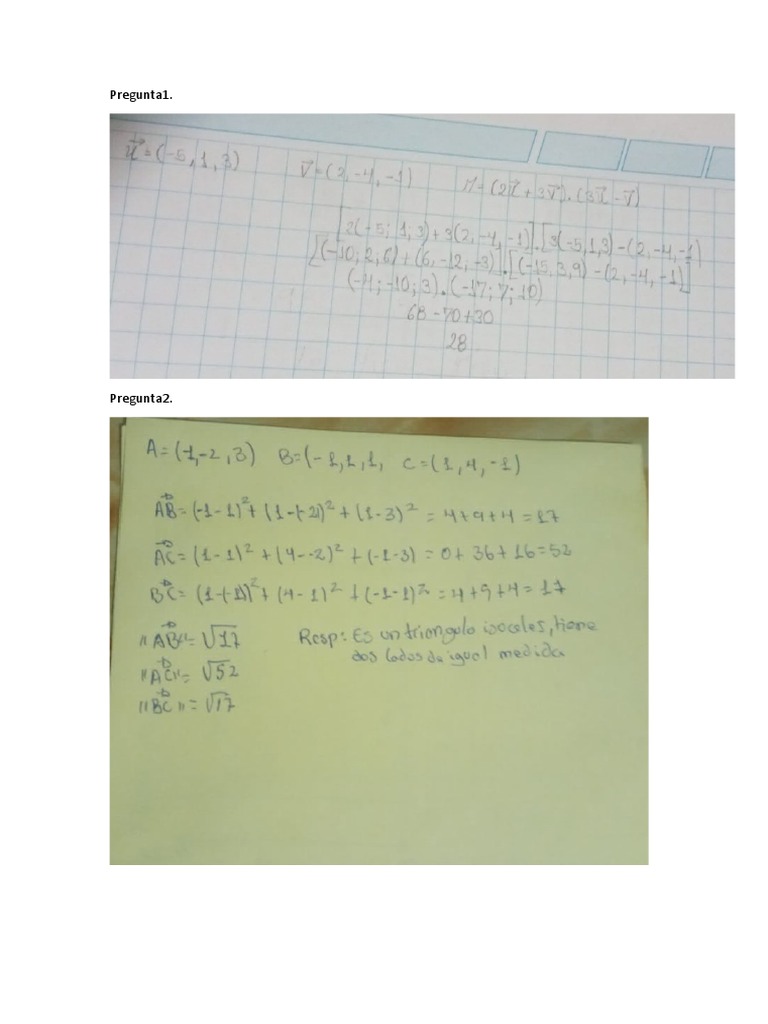 Pregunta1.
u⃗=(-5,1,3) v⃗=(2,-4,-1) M=(2u⃗+3v⃗).(3u⃗-v⃗)
[2(-5;1;3)+3(2,-4,-1].[3(-5,1,3)-(2,-4,-1)
[(-10;2,6)+(6,-12,-3)].[(-15,3,9)-(2,-4,-1)]
(-4;-10;3).(-17;7;10)
68-70+30
28
Pregunta2.
A=(1,-2,3) B=(-1,1,1, C=(1,4,-1)
AB⃗=(-1-1)²+(1-(-2))²+(1-3)²=4+9+4=17
AC⃗=(1-1)²+(4--2)²+(-1-3)=0+36+16=52
BC⃗=(1-(-1))²+(4-1)²+(-1-1)²=4+9+4=17
"AB⃗"=√17 Resp: Es un triangulo isoceles, tiene
dos lados de igual medida
"AC⃗"=√52
"BC⃗"=√17